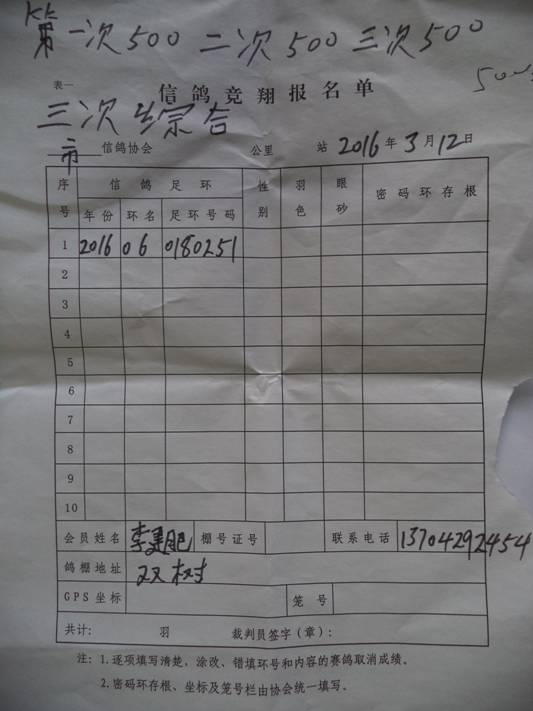 第一次500 二次500 三次500
表一
信鸽竞翔报名单
三次综合
市 信鸽协会 公里 站 2016年3月12日
序号 信鸽足环 性别 羽色 眼砂 密码环存根
年份 环名 足环号码
1 2016 06 0180251
2
3
4
5
6
7
8
9
10
会员姓名 李建肥 棚号证号 联系电话 13704292454
鸽棚地址 双树
GPS坐标 笼号
共计: 羽 裁判员签字(章):
注: 1.逐项填写清楚、涂改、错填环号和内容的赛鸽取消成绩。
2.密码环存根、坐标及笼号栏由协会统一填写。